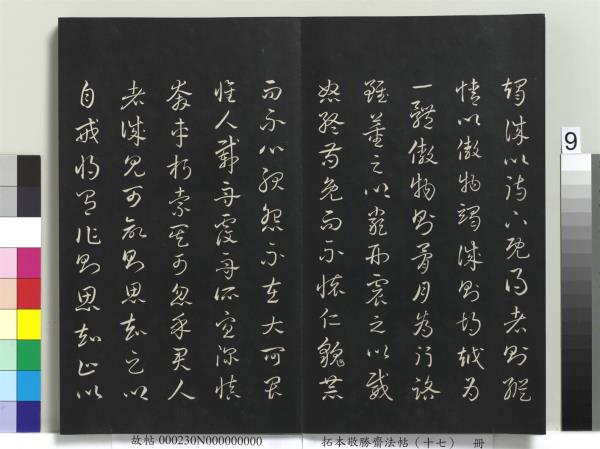 竭誠以待下既得志則縱
情以傲物竭誠則胡越為
一體傲物則骨肉為行路
雖董之以嚴刑震之以威
怒終苟免而不懷仁貌恭
而不心服怨不在大可畏
惟人載舟覆舟所宜深慎
奔車朽索其可忽乎君人
者誠見可欲則思知足以
自戒將有作則思知止以
9
故帖 000230N000000000
拓本敬勝齋法帖(十七) 冊